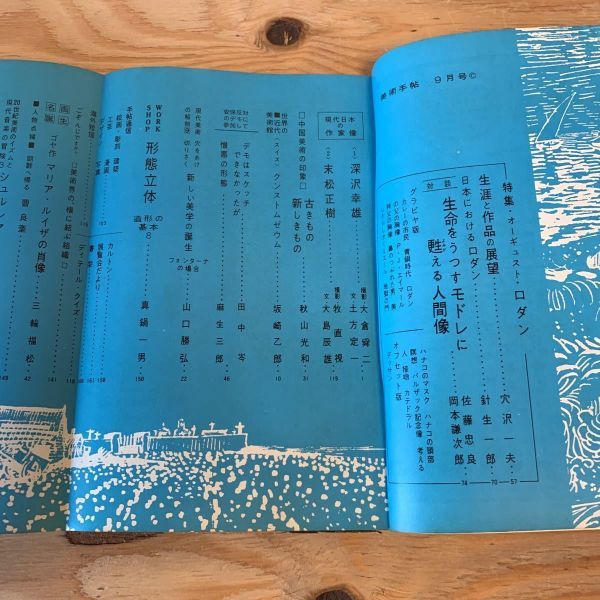 美術手帖 9月号©
特集・オーギュスト・ロダン
生涯と作品の展望 穴沢一夫 57
日本におけるロダン 針生一郎 70
対談 生命をうつすモドレに 甦える人間像 佐藤忠良 岡本謙次郎 74
グラビヤ版
カレーの市民 青銅時代 ロダン
の父の胸像 P・J・エイマール
オフセット版
ハナコのマスク ハナコの頭部
瞑想 バルザック記念像 考える
人 接吻 カテドラル
デッサン
現代日本の作家像
〈1〉深沢幸雄 撮影 倉舜二 文 土方定一 1
〈2〉末松正樹 撮影 牧直視 文 大島辰雄 119
□中国美術の印象□ 古きもの 新しきもの 秋山光和 31
世界の美術館 ■近代〈スイス〉クンストムゼウム 坂崎乙郎 10
安保反対のデモに参加して デモはスケッチできなかったが 田中岑
憎悪の形態 麻生三郎 46
現代美術に穴をあけ
の絵画感 切りさく 新しい美学の誕生 フォンターナの場合 山口勝弘 22
WORK SHOP 形態立体 造形の基本 8 真鍋一男 150
手帖通信
絵画・彫刻 建築
工芸 漫画
デザ 写真 163
海外短信 115
ディテール クイズ
画生名誕 ゴヤ作 マリア・ルイザの肖像 三輪福松 141
■人物点描■ 朝鮮へ帰る 曺良奎 42
20世紀美術のイズムと
現代音楽の冒険3 シュルレア 149